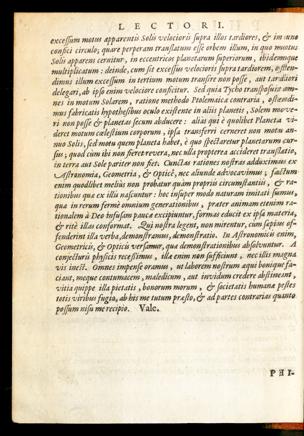 LECTORI.
excessum motus apparentis Solis velocioris supra illos tardiores, & in uno
confici circulo; quare perperam translatum esse orbem illum, in quo motus
Solis apparens cernitur, in eccentricos planetarum superiorum, ibidemque
multiplicatum: deinde, cum sit excessus velocioris supra tardiorem, osten-
dimus illum excessum in tertium motum transire non posse, aut tardiori
delegari, ab ipso enim velociore conficitur. Sed quia Tycho transposuit om-
nes in motum Solarem, ratione methodo Ptolemaica contraria, ostendi-
mus fabricatis hypothesibus oculo existente in aliis planetis, Solem move-
ri non posse & planetas secum abducere: alias qui è quolibet Planeta vi-
deret motum cælestium corporum, ipsa transferri cerneret non motu an-
nuo Solis, sed motu quem planeta habet, è quo spectaretur planetarum cur-
sus; quod cum ibi non fieret revera, nec ulla propterea accideret translatio,
in terra aut Sole pariter non fiet. Cunctas rationes nostras adduximus ex
Astronomia, Geometria, & Opticè, nec aliunde advocavimus; factum
enim quodlibet melius non probatur quàm propriis circumstantiis, & ra-
tionibus quæ ex illis nascuntur: hoc insuper modo naturam imitati sumus,
qua in rerum fermè omnium generationibus, præter animam etenim ra-
tionalem à Deo infusam pauca excipiuntur, formas educit ex ipsa materia,
& ritè illas conformat. Qui nostra legent, non mirentur, cum sæpius of-
fenderint illa verba, demonstramus, demonstratio. In Astronomicis enim,
Geometricis, & Opticis versamur, quæ demonstrationibus absolvuntur. A
conjecturis physicis recessimus, illa enim non sufficiunt, nec illis magna
vis inest. Omnes impensè oramus, ut laborem nostrum æqui bonique fa-
ciant, meque contumacem, maledicum, aut invidum credere abstineant,
vitia quippe illa pietatis, bonorum morum, & societatis humanæ pestes
totis viribus fugio, ab his me tutum præsto, & ad partes contrarias quanto
possum nisu me recipio. Vale.
PHI-